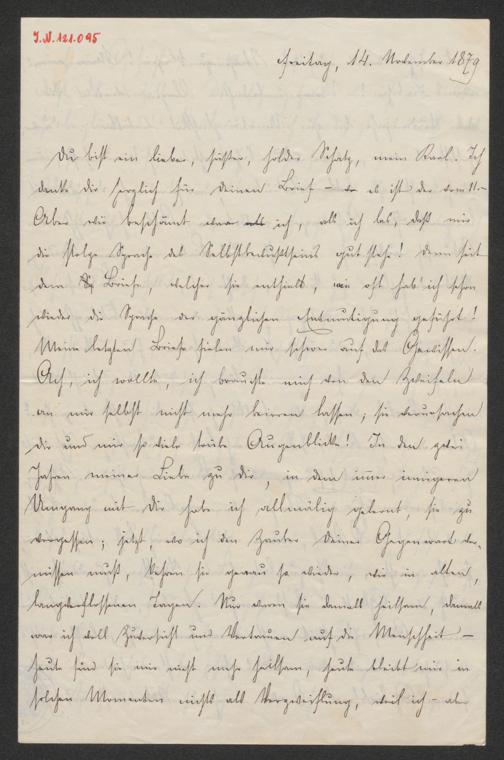 I.N. 121.095
Freitag, 14. November 1879
Du bist ein lieber, süßer, holder Schatz, mein Karl. Ich
danke dir herzlich für deinen Brief – es ist der vom 11. –
Aber wie beschämt war ich, als ich las, daß mir
die stolze Sprache des Selbstbewußtseins gut stehe! denn seit
dem Briefe, welcher sie enthielt, wie oft hab' ich schon
wieder die Sprache der gänzlichen Entmutigung geführt!
Meine letzten Briefe fielen mir schwer auf das Gewissen.
Ach, ich wollte, ich brauchte mich von den Zweifeln
an mir selbst nicht mehr beirren lassen; sie verursachen
dir und mir so viele trübe Augenblicke! In den zwei
Jahren meiner Liebe zu dir, in dem immer innigeren
Umgang mit Dir habe ich allmälig gelernt, sie zu
vergessen; jetzt, wo ich den Zauber deiner Gegenwart ver-
missen muß, kehren sie genau so wieder, wie in alten,
langverflossenen Tagen. Nur waren sie damals heilsam, damals
war ich voll Zuversicht und Vertrauen auf die Menschheit –
heute sind sie mir nicht mehr heilsam, heute bleibt mir in
solchen Momenten nichts als Verzweiflung, weil ich – aber